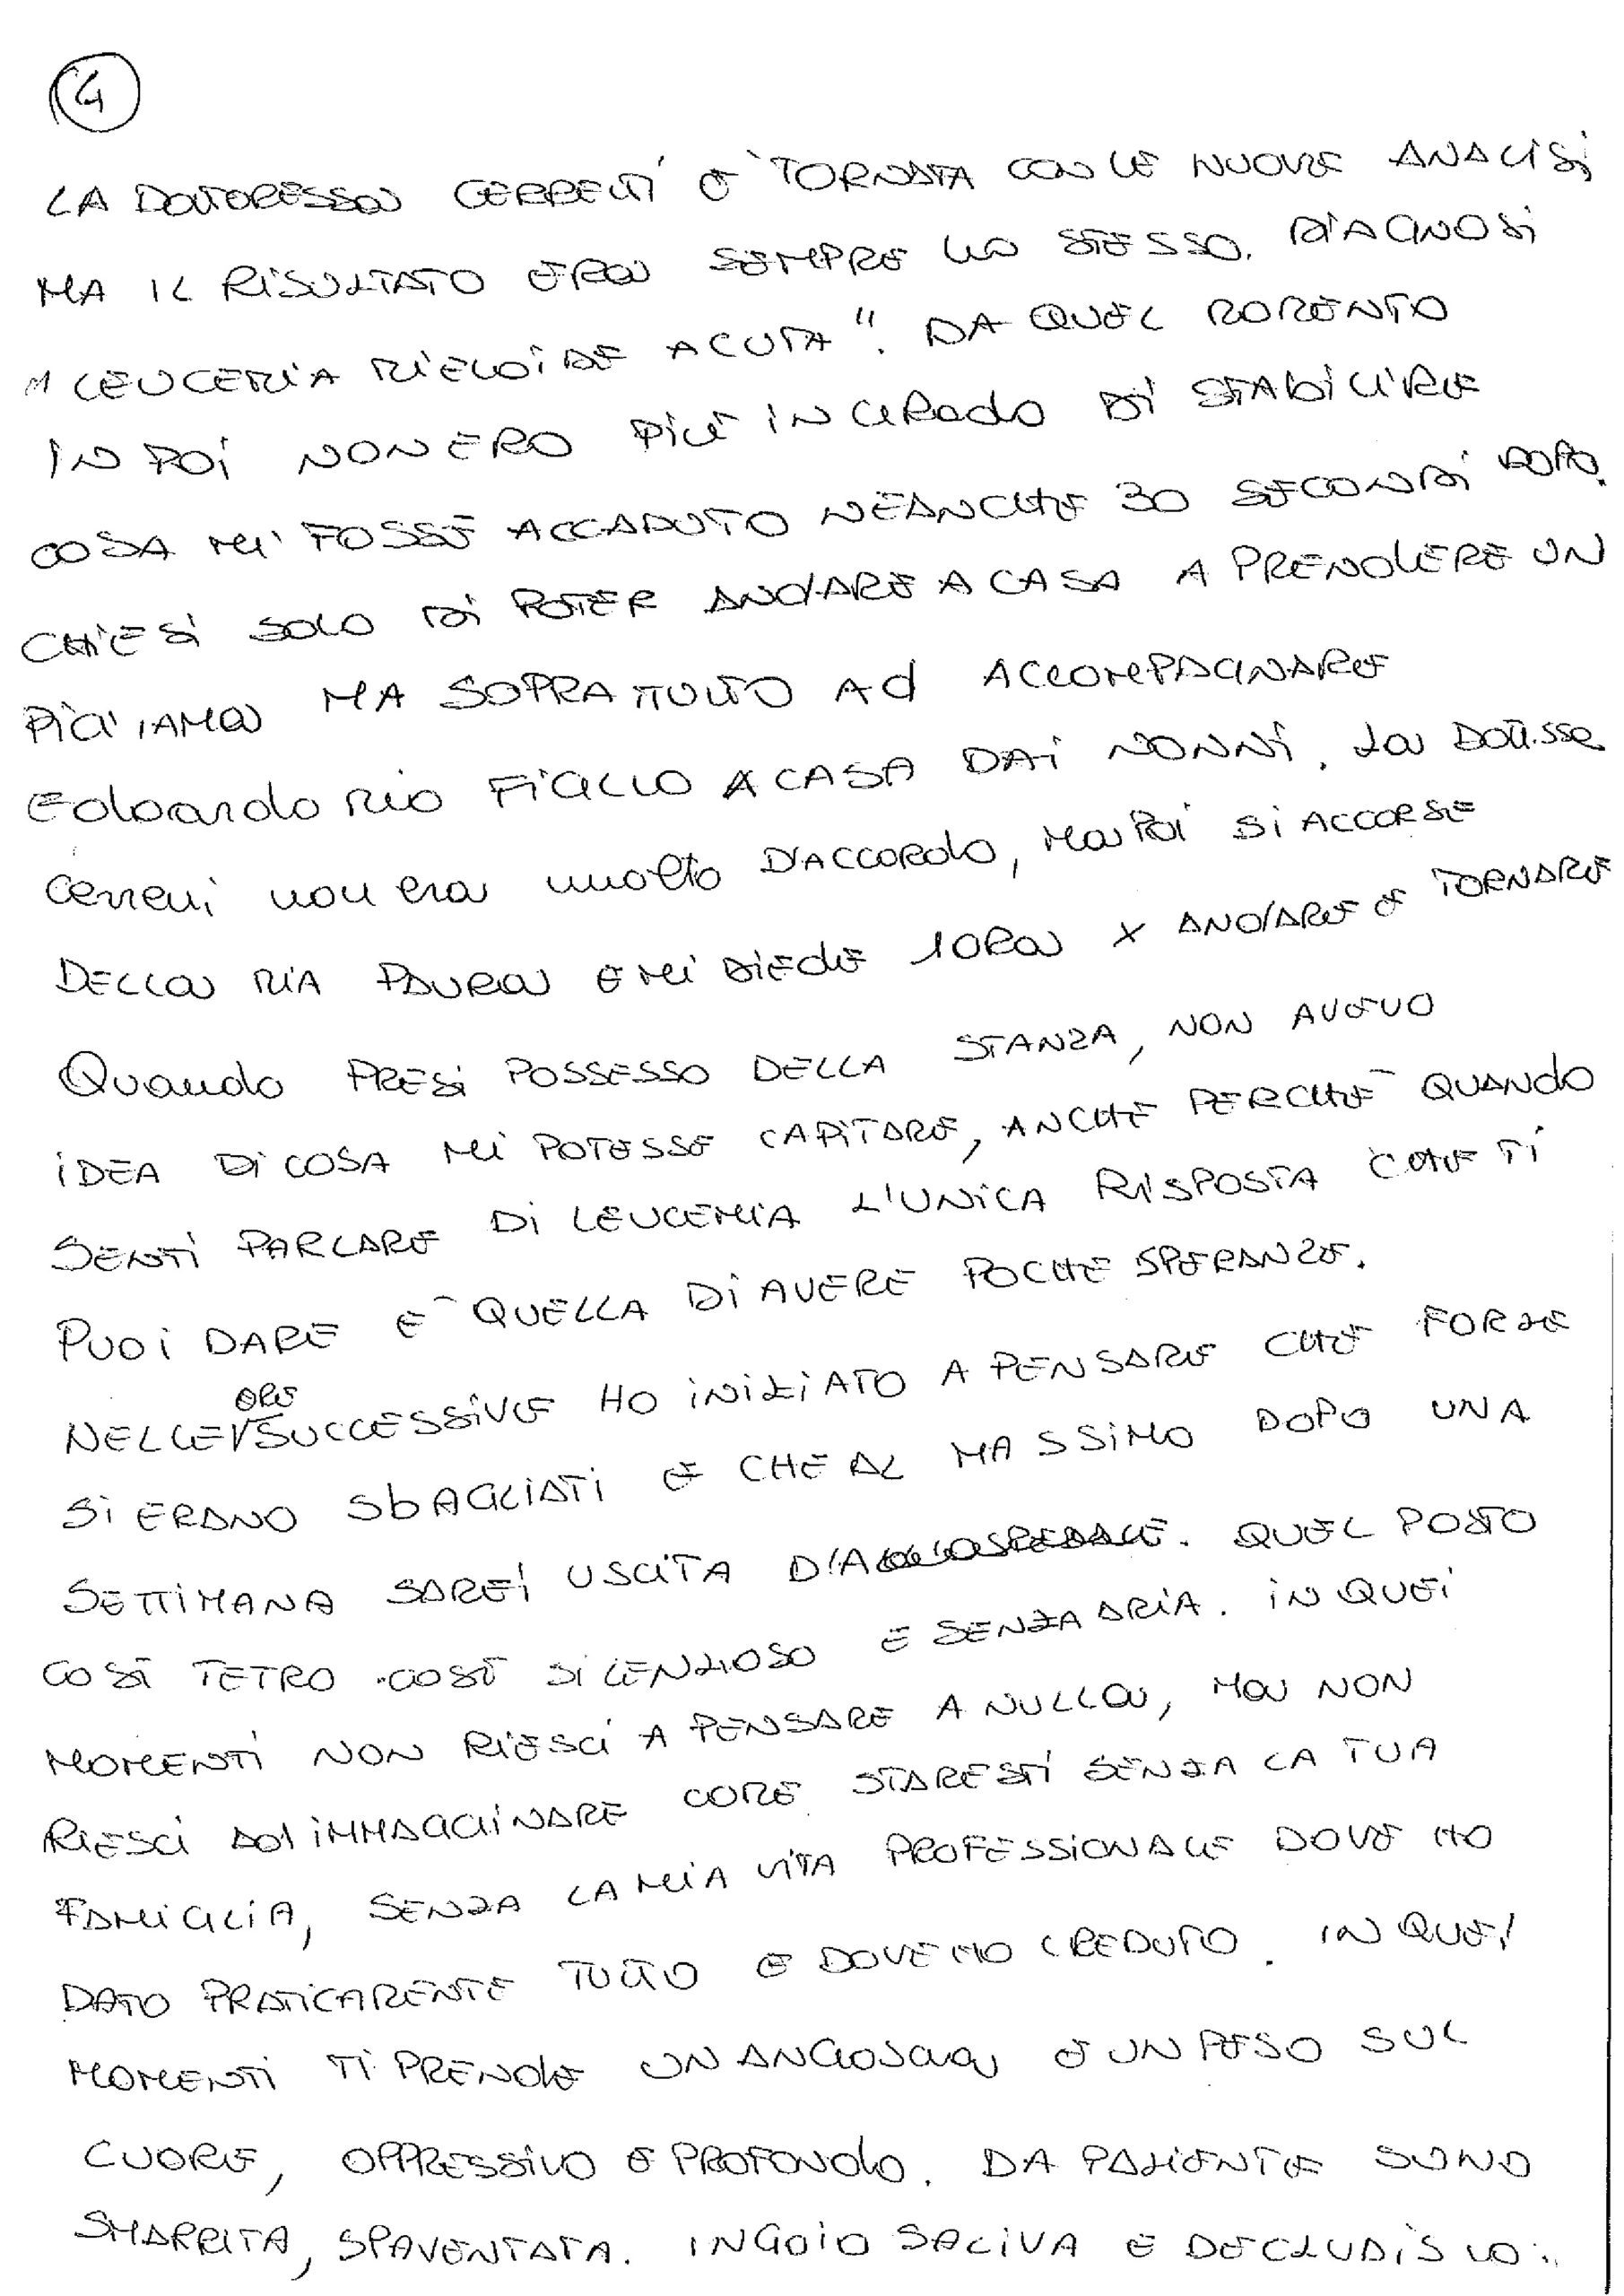 4
LA DOTTORESSA CERRETI È TORNATA CON LE NUOVE ANALISI
MA IL RISULTATO ERA SEMPRE LO STESSO. DIAGNOSI
"LEUCEMIA MIELOIDE ACUTA". DA QUEL MOMENTO
IN POI NON ERO PIÙ IN GRADO DI STABILIRE
COSA MI FOSSE ACCADUTO NEANCHE 30 SECONDI DOPO.
CHIESI SOLO DI POTER ANDARE A CASA A PRENDERE UN
PIGIAMA MA SOPRATTUTTO AD ACCOMPAGNARE
Edoardo MIO FIGLIO A CASA DAI NONNI. La DOTT.SSA
Cerreti non era molto D'ACCORDO, MA POI SI ACCORSE
DELLA MIA PAURA E MI DIEDE 1 ORA X ANDARE E TORNARE
Quando PRESI POSSESSO DELLA STANZA, NON AVEVO
IDEA DI COSA MI POTESSE CAPITARE, ANCHE PERCHÉ QUANDO
SENTI PARLARE DI LEUCEMIA L'UNICA RISPOSTA CHE TI
PUOI DARE È QUELLA DI AVERE POCHE SPERANZE.
NELLE ORE SUCCESSIVE HO INIZIATO A PENSARE CHE FORSE
SI ERANO SBAGLIATI E CHE AL MASSIMO DOPO UNA
SETTIMANA SAREI USCITA D'ALL'OSPEDALE. QUEL POSTO
COSÌ TETRO COSÌ SILENZIOSO E SENZA ARIA. IN QUEI
MOMENTI NON RIESCI A PENSARE A NULLA, MA NON
RIESCI AD IMMAGGINARE COME STARESTI SENZA LA TUA
FAMIGLIA, SENZA LA MIA VITA PROFESSIONALE DOVE HO
DATO PRATICAMENTE TUTTO E DOVE HO CREDUTO. IN QUEI
MOMENTI TI PRENDE UN ANGOSCIA E UN PESO SUL
CUORE, OPPRESSIVO E PROFONDO. DA PAZIENTE SONO
SMARRITA, SPAVENTATA. INGOIO SALIVA E